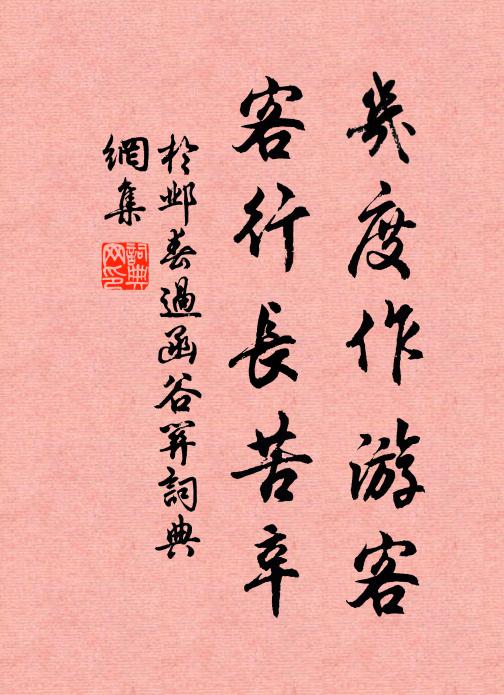 幾度作游客
客行長苦辛
於邺春過函谷關詞典
網集
詞典網印